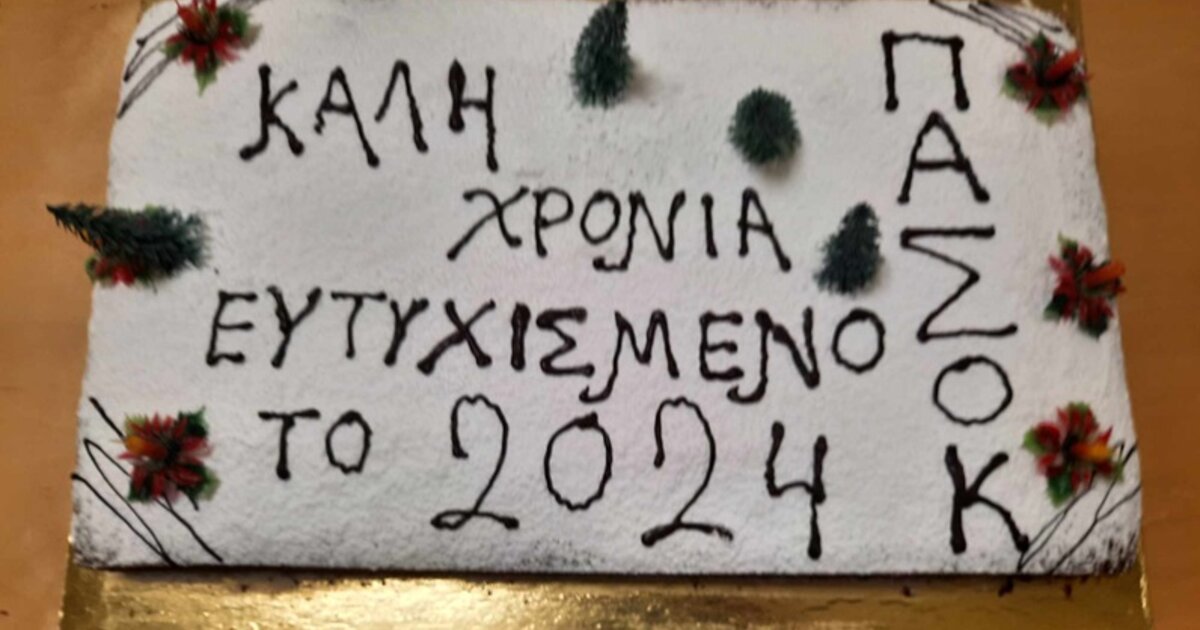 ΚΑΛΗ
ΧΡΟΝΙΑ
ΕΥΤΥΧΙΣΜΕΝΟ
ΤΟ 2024
ΠΑΣΟΚ